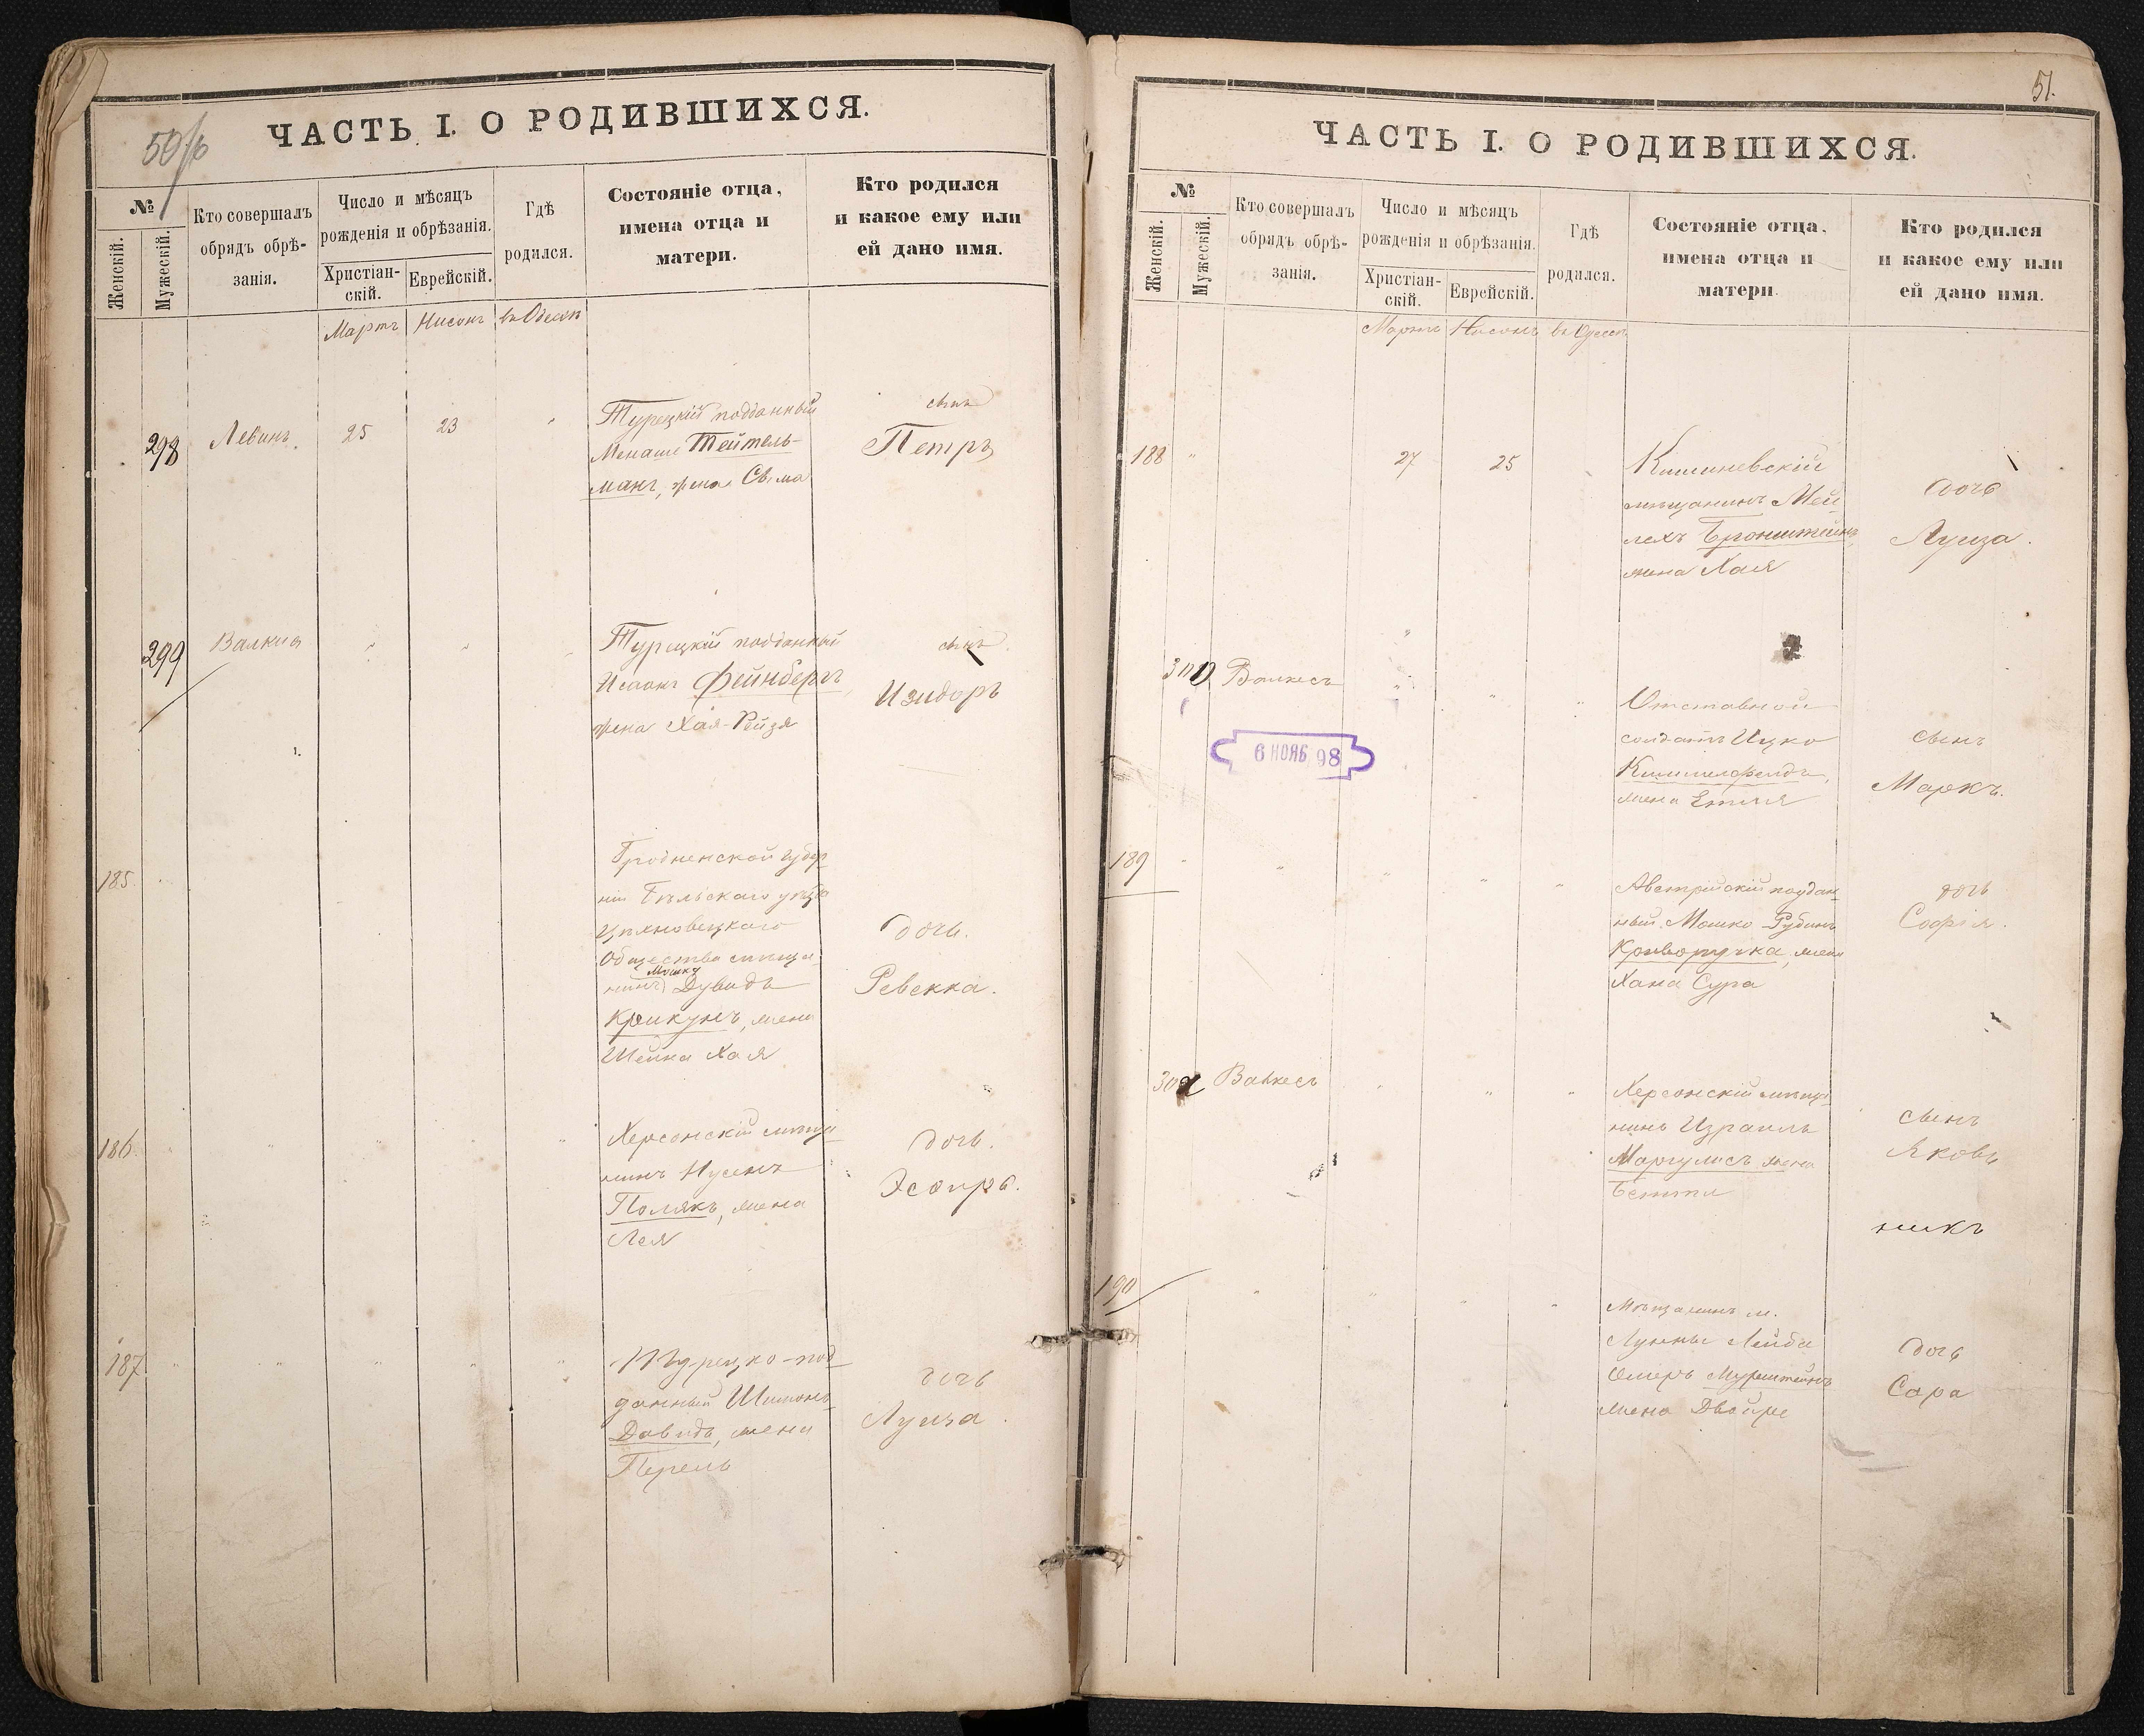 50/б
ЧАСТЬ I. О РОДИВШИХСЯ.
№
Женскій.
Мужескій.
Кто совершалъ
обрядъ обрѣ-
занія.
Число и мѣсяцъ
рожденія и обрѣзанія.
Христіан-
скій.
Еврейскій.
Гдѣ
родился.
Состояніе отца,
имена отца и
матери.
Кто родился
и какое ему или
ей дано имя.
Мартъ Нисонъ въ Одессѣ
298 Левинъ. 25 23 "
Турецкій подданный
Менаше Тейтель-
манъ, жена Сыма
сынъ
Петръ
299 Валкис " " "
Турецкій подданный
Исаакъ Фейнбергъ,
жена Хая-Рейзя
сынъ.
Изидоръ
185
Гродненской губер
ніи Бѣльскаго уѣзда
Цѣхновецкаго
Общества мѣща-
Мошку
нинъ Дувидъ
Крикунъ, жена
Шейна Хая
дочь.
Ревекка.
186. " " " "
Херсонскій мѣща
нинъ Нусенъ
Полякъ, жена
Лея
дочь.
Эсѳирь.
187. " " " " "
Турецко-под
данный Шимонъ
Давидъ, жена
Перель
дочь
Луиза
51.
ЧАСТЬ I. О РОДИВШИХСЯ.
№
Женскій.
Мужескій.
Кто совершалъ
обрядъ обрѣ-
занія.
Число и мѣсяцъ
рожденія и обрѣзанія.
Христіан-
скій.
Еврейскій.
Гдѣ
родился.
Состояніе отца,
имена отца и
матери.
Кто родился
и какое ему или
ей дано имя.
Мартъ Нисонъ въ Одессѣ
188 " 27 25
Кишиневскій
мѣщанинъ Мей
лехъ Бронштейнъ,
жена Хая
дочь
Луиза.
300 Валкесъ " " "
6 НОЯБ 98
Отставной
солдатъ Ицко
Киммельфельдъ,
жена Етля
сынъ
Маркъ.
189 " " " " "
Австрійскій поддан
ный Мошко Рубинъ
Криворучка, жена
Хана Сура
дочь
Софія.
302 Валкесъ " " "
Херсонскій мѣща
нинъ Израиль
Маргулисъ жена
Бетти
сынъ
Яковъ
никъ
190 " " " "
Мѣщанинъ м.
Лунны Лейба
Омеръ Мурштейнъ
жена Двойре
дочь
Сара